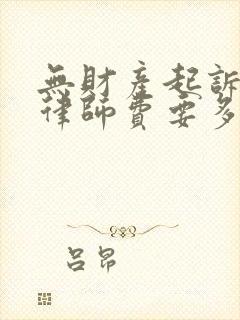 無財產起訴
律師費要多
呂昂